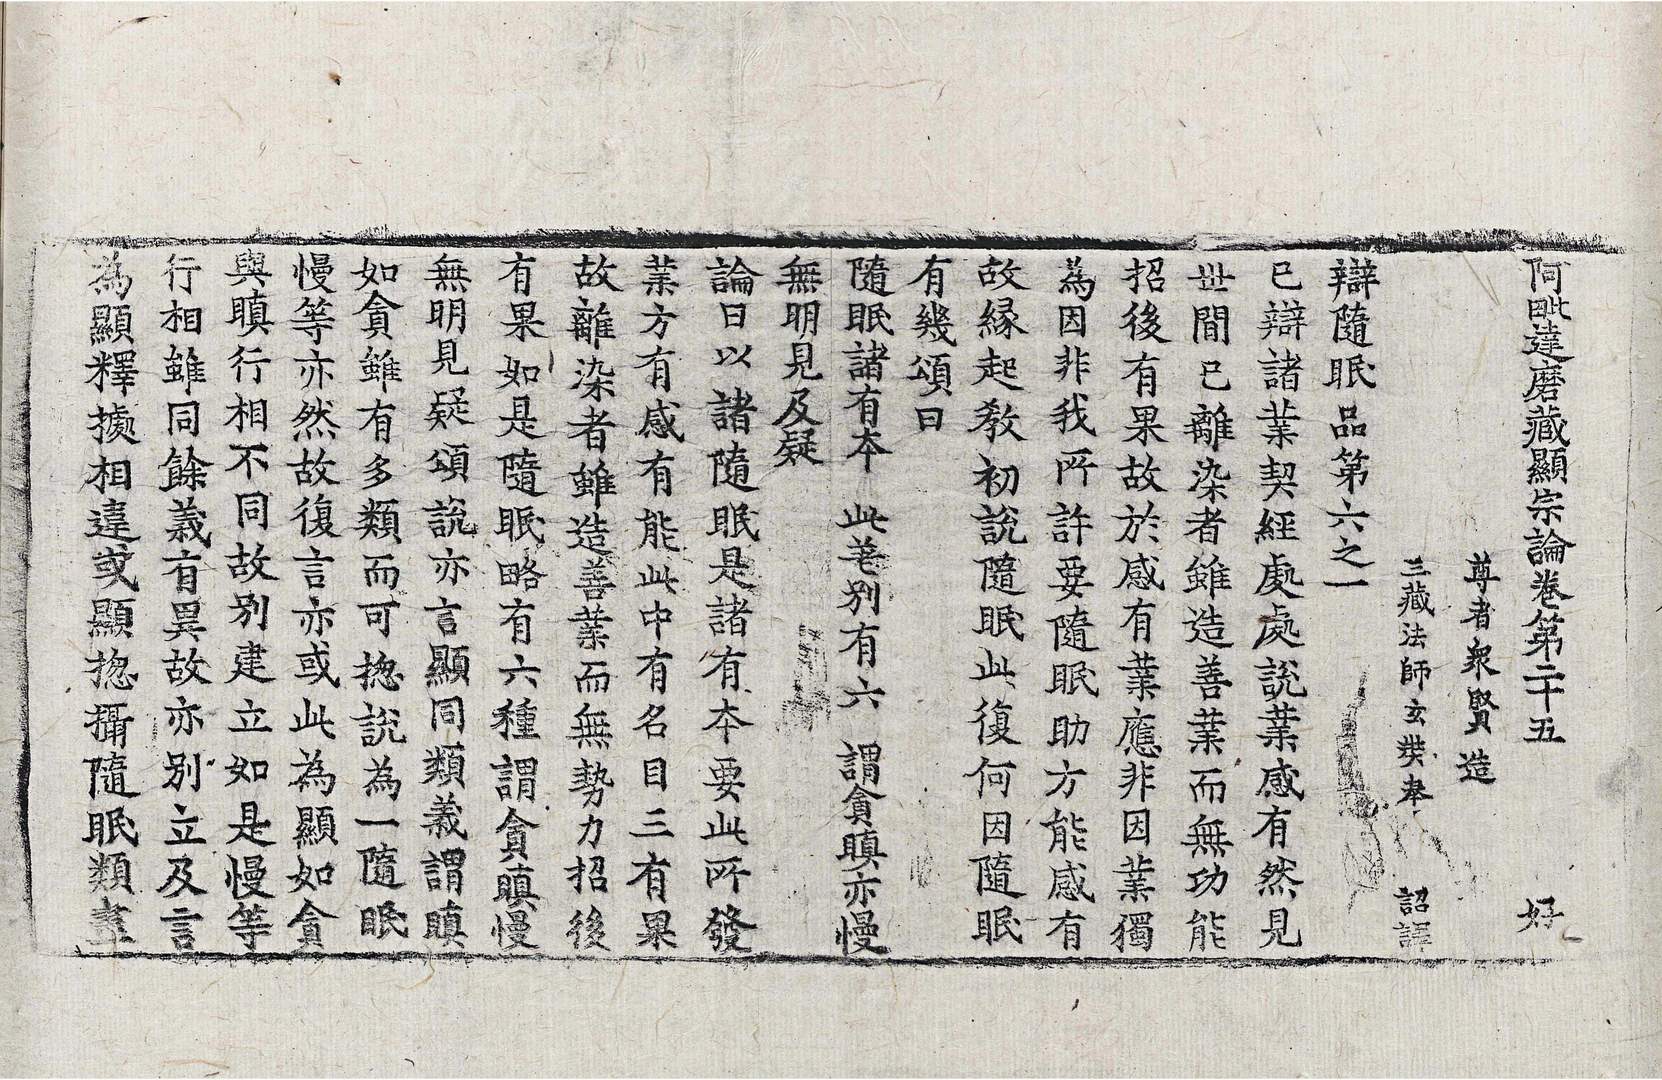 阿毗達磨藏顯宗論卷第二十五 好
尊者衆賢造
三藏法師玄奘奉 詔譯
辯隨眠品第六之一
已辯諸業契經處處說業感有然見
世閒已離染者雖造善業而無功能
招後有果故於感有業應非因業獨
爲因非我所許要隨眠助方能感有
故緣起教初說隨眠此復何因隨眠
有幾頌曰
隨眠諸有本 此差别有六 謂貪瞋亦慢
無明見及疑
論曰以諸隨眠是諸有本要此所發
業方有感有能此中有名目三有果
故離染者雖造善業而無勢力招後
有果如是隨眠略有六種謂貪瞋慢
無明見疑頌說亦言顯同類義謂瞋
如貪雖有多類而可揔說為一隨眠
慢等亦然故復言亦或此為顯如貪
與瞋行相不同故别建立如是慢等
行相雖同餘義有異故亦别立及言
為顯釋據相違或顯揔攝隨眠類盡